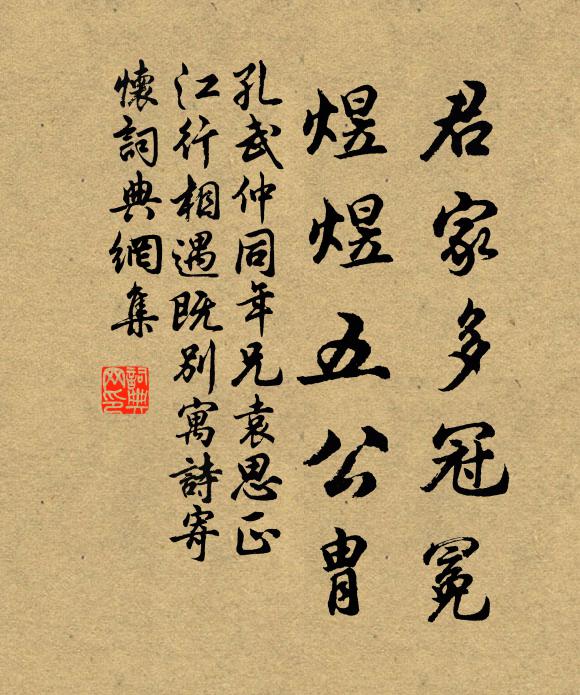 君家多冠冕
煜煜五公胄
孔武仲同年兄袁思正
江行相遇既別寓詩寄
懷詞典網集
詞典
网印